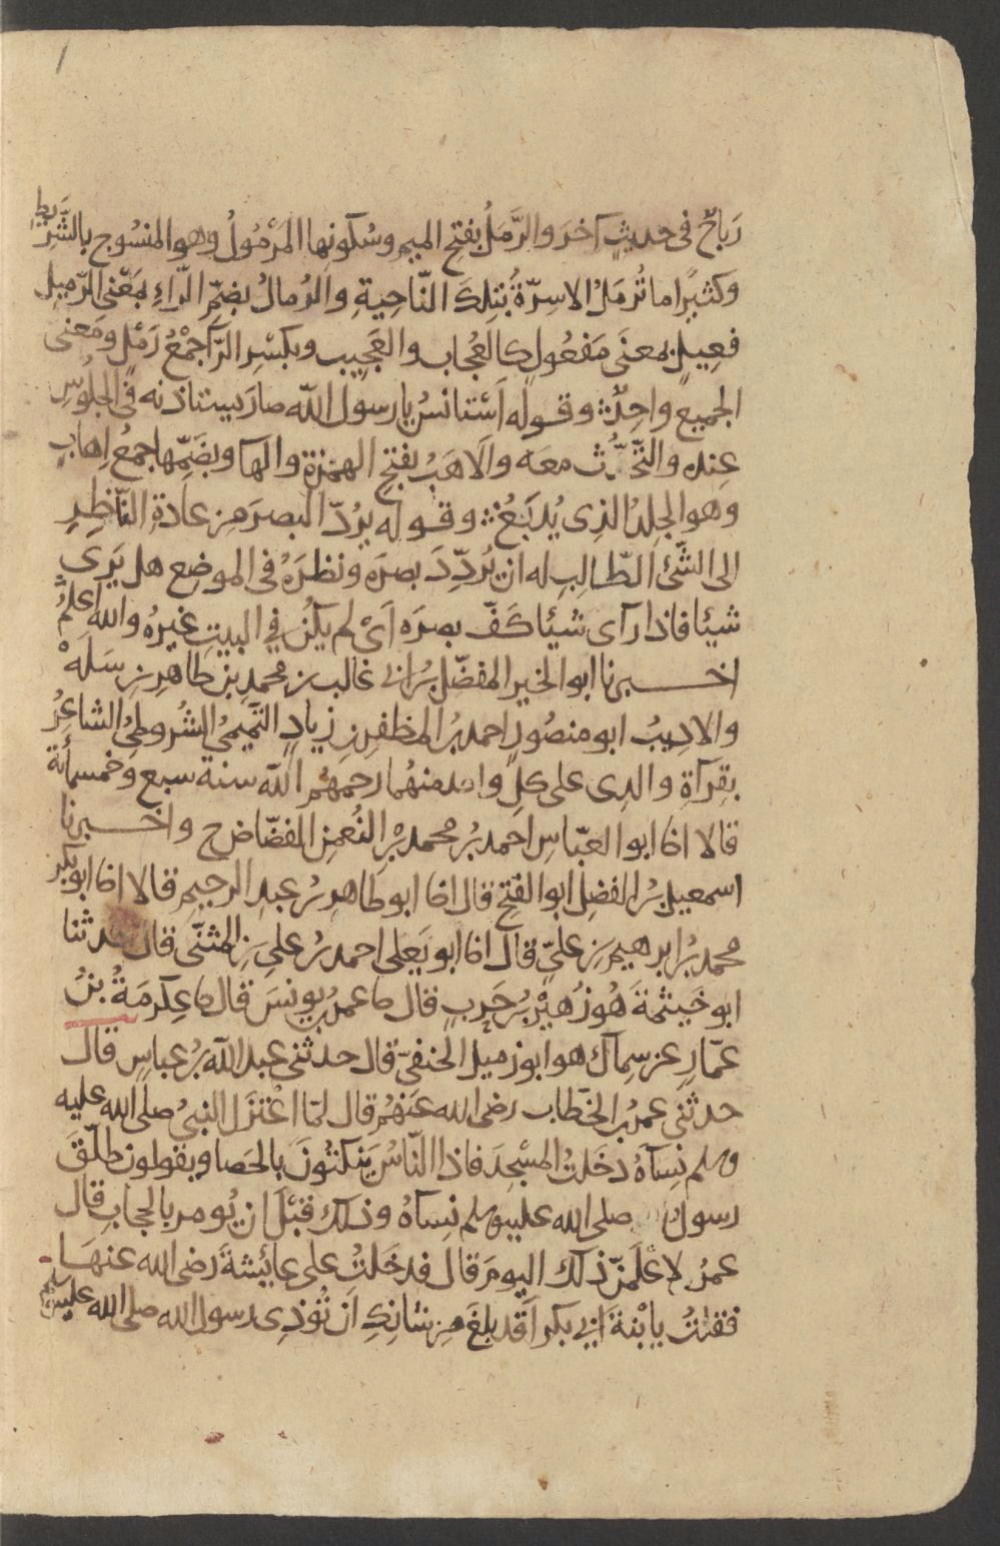 رَباحٌ فى حديثٍ آخرَ والرَّمَلُ بفتح الميم وسُكونها المَرْمُولُ وهو المنسُوج بالشَّرِيط
وكثيرًا ما تُرمَلُ الاسِرّةُ بتلكَ النّاحيةِ والرُمالُ بضمِّ الرّاءِ بمَعْنى الرّميل
فعِيلٍ بمعنَى مَفعُولٍ كالعُجاب والعَجِيب وبكسْرِ الرّا جمْعُ رَمْلٍ ومَعنى
الجميع واحِدٌ وقوله اَسْتانسُ يا رسول الله صار يستاذنه فى الجلُوسِ
عنده والتّحدُّث معَه والاَهَبُ بفتح الهمزةِ والها وبضَمِّها جمعُ اِهابٍ
وهو الجِلدُ الذِى يُدبَغُ وقوله يرُدّ البصرَ مِن عادةِ النّاظِرِ
الى الشَّئِ الطّالِبِ له ان يُردِّدَ بصرَه ونظرَهُ فى الموضع هل يَرى
شيئا فاذا رآى شيئا كَفّ بصرَه اَىْ لم يكُن فى البيتِ غيرُه والله اعلمُ
اخبرنا ابو الخير المفضّل بن ابى غالب بن محمد بن طاهر بن سَلَمةْ
والاديبُ ابو منصُورٍ احمد بن المظفر بن زيادٍ التَّميمىُّ الشُروطىُّ الشاعِرُ
بقِرآةِ والدِى على كلِّ واحد منهُما رحمهُم الله سنة سبع وخمسمائة
قالا انا ابو العبّاسِ احمد بنُ محمد بْنِ النُعمن الفضّاض ح واخبرنا
اسمعيل بنُ الفضل ابو الفتح قال انا ابو طاهر بنُ عبد الرحيم قالا انا ابو بكر
محمد بنُ ابرهيم بن علىٍّ قال انا ابو يَعلى احمد بنُ على بن المثنّى قال حدثنا
ابو خَيثمَةَ هُو زُهيْرُ بنُ حَربٍ قال نا عمر بن يونسَ قال نا عِكرمَةُ بنُ
عمّارٍ عن سِماك هو ابو زميل الحنفىّ قال حدثنى عبد الله بنُ عباسٍ قال
حدثنى عمر بن الخطاب رضى الله عنهُم قال لمّا اعْتزَل النبىُ صلى الله عليه
وسلم نِسآهُ دخَلتُ المسْجِدَ فاذا النّاسُ يَنكتُونَ بالحَصا ويقولون طلّقَ
رسول الله صلى الله عليه وسلم نِسآهُ وذلك قبْلَ ان يُومر بالحجابِ قال
عمرُ لاَعْلَمَنّ ذلك اليومَ قال فدخَلتُ على عايُشةَ رَضى الله عنهَا
فقلتُ يا بْنةَ ابى بكر اَقد بلغَ مِن شانِكِ اَن تُؤذى رسول الله صلى الله عليه وسلم